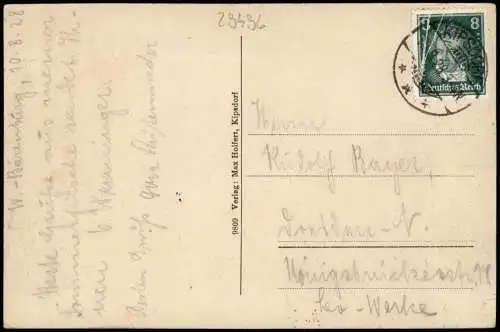 23436
W.-Bärenburg, 10.8.28
Werte Grüße aus meiner
Sommerfrische sendet Ih-
nen
Besten Gruß
9809 Verlag: Max Holfert, Kipsdorf
8
Deutsches Reich
Herrn
Rudolf Bayer,
Dresden-N.
Königsbrückerstr.
Werke